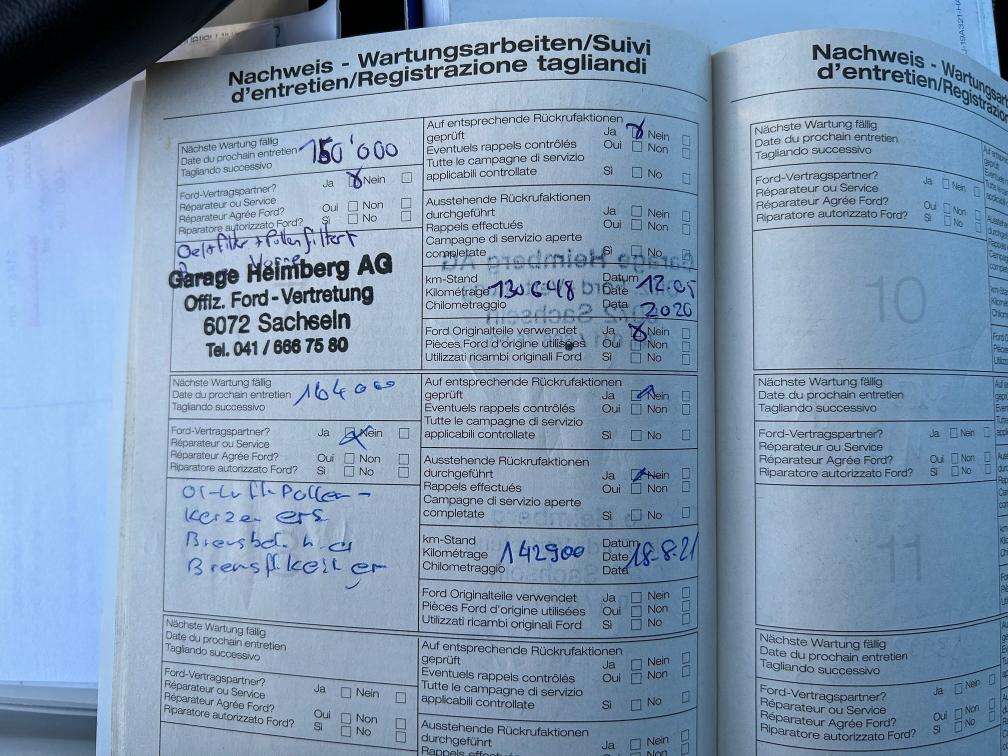 Nachweis - Wartungsarbeiten/Suivi
d'entretien/Registrazione tagliandi
Nächste Wartung fällig
Date du prochain entretien
Tagliando successivo
150'000
Ford-Vertragspartner? Ja Nein
Réparateur ou Service
Réparateur Agrée Ford? Oui Non
Riparatore autorizzato Ford? Sì No
Oel+filter + Pollenfilter
Garage Heimberg AG
Offiz. Ford-Vertretung
6072 Sachseln
Tel. 041 / 666 75 80
Auf entsprechende Rückrufaktionen
geprüft Ja Nein
Eventuels rappels contrôlés Oui Non
Tutte le campagne di servizio
applicabili controllate Sì No
Ausstehende Rückrufaktionen
durchgeführt Ja Nein
Rappels effectués Oui Non
Campagne di servizio aperte
completate Sì No
km-Stand Datum
Kilométrage 130648 Date 12.05
Chilometraggio Data 2020
Ford Originalteile verwendet Ja Nein
Pièces Ford d'origine utilisées Oui Non
Utilizzati ricambi originali Ford Sì No
Nächste Wartung fällig
Date du prochain entretien 164000
Tagliando successivo
Ford-Vertragspartner? Ja Nein
Réparateur ou Service
Réparateur Agrée Ford? Oui Non
Riparatore autorizzato Ford? Sì No
Öl-Luft-Pollen-
Kerzen ers
Auf entsprechende Rückrufaktionen
geprüft Ja Nein
Eventuels rappels contrôlés Oui Non
Tutte le campagne di servizio
applicabili controllate Sì No
Ausstehende Rückrufaktionen
durchgeführt Ja Nein
Rappels effectués Oui Non
Campagne di servizio aperte
completate Sì No
km-Stand Datum
Kilométrage 142900 Date 18.8.21
Chilometraggio Data
Ford Originalteile verwendet Ja Nein
Pièces Ford d'origine utilisées Oui Non
Utilizzati ricambi originali Ford Sì No
Nächste Wartung fällig
Date du prochain entretien
Tagliando successivo
Ford-Vertragspartner? Ja Nein
Réparateur ou Service
Réparateur Agrée Ford? Oui Non
Riparatore autorizzato Ford? Sì No
Auf entsprechende Rückrufaktionen
geprüft Ja Nein
Eventuels rappels contrôlés Oui Non
Tutte le campagne di servizio
applicabili controllate Sì No
Ausstehende Rückrufaktionen
durchgeführt Ja Nein
Rappels effectués
Nachweis - Wartungsar
d'entretien/Registrazio
Nächste Wartung fällig
Date du prochain entretien
Tagliando successivo
Ford-Vertragspartner? Ja Nein
Réparateur ou Service
Réparateur Agrée Ford? Oui Non
Riparatore autorizzato Ford? Sì No
10
Nächste Wartung fällig
Date du prochain entretien
Tagliando successivo
Ford-Vertragspartner? Ja Nein
Réparateur ou Service
Réparateur Agrée Ford? Oui Non
Riparatore autorizzato Ford? Sì No
11
Nächste Wartung fällig
Date du prochain entretien
Tagliando successivo
Ford-Vertragspartner? Ja Nein
Réparateur ou Service
Réparateur Agrée Ford? Oui Non
Riparatore autorizzato Ford? Sì No